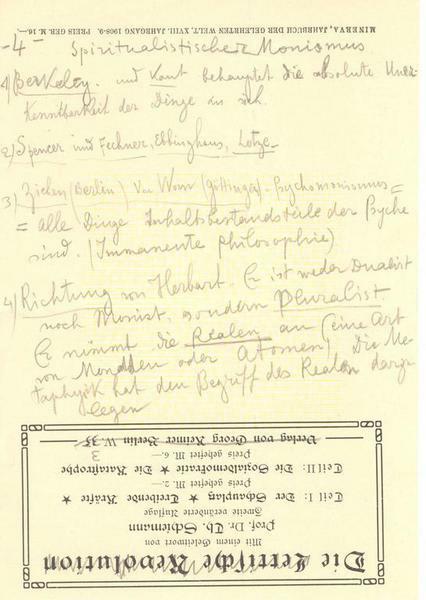 MINERVA, JAHRBUCH DER GELEHRTEN WELT, XVIII. JAHRGANG 1908-9. PREIS GEB. M. 16,—.
-4- Spiritualistischer Monismus
1) Berkeley. und Kant behauptet die absolute Uner-
kenntbarkeit der Dinge an sich.
2) Spencer und Fechner, Ebbinghaus, Lotze
3) Ziehen (Berlin) Ver Worn (Göttingen). Psychomonismus =
= alle Dinge Inhaltsbestandsteile der Psyche
sind. (Immanente Philosophie)
4) Richtung von Herbart. Er ist weder Dualist
noch Monist, sondern Pluralist.
Er nimmt die Realen an (eine Art
von Monaden oder Atomen) Die Me-
taphysik hat den Begriff des Realen darzu-
legen
Die Lettische Revolution
Mit einem Geleitwort von
Prof. Dr. Th. Schiemann
Zweite veränderte Auflage
Teil I: Der Schauplatz ★ Treibende Kräfte ★
Preis geheftet M. 2.—
Teil II: Die Sozialdemokratie ★ Die Katastrophe
Preis geheftet M. 6.—
3
Verlag von Georg Reimer Berlin W. 35